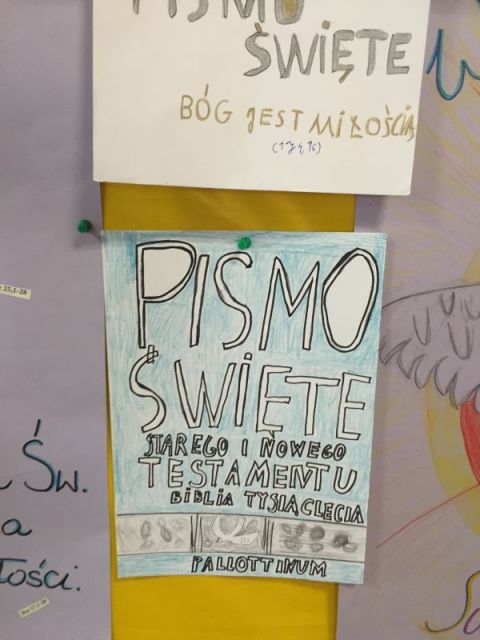 PISMO
ŚWIĘTE
BÓG JEST MIŁOŚCIĄ
(1 J 4, 16)
PISMO
ŚWIĘTE
STAREGO I NOWEGO
TESTAMENTU
BIBLIA TYSIĄCLECIA
PALLOTTINUM
25,1-28
Św.
a
ości.